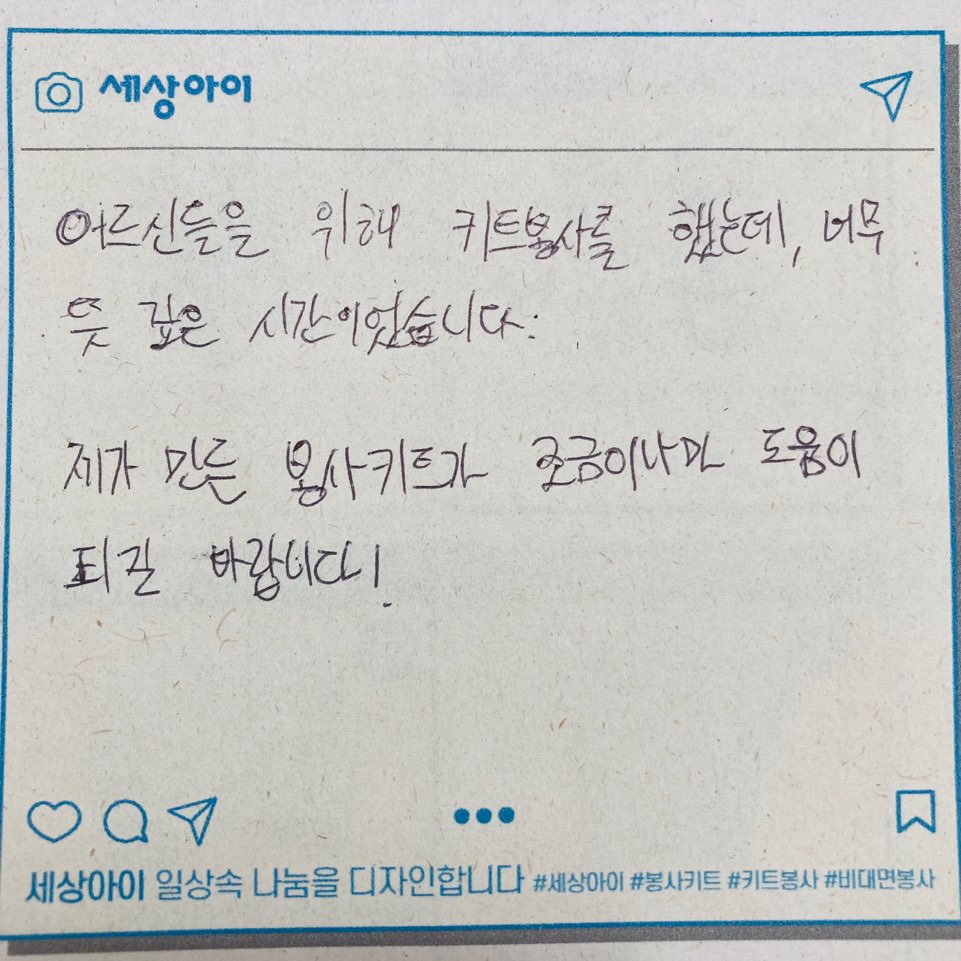 세상아이
어르신들을 위해 키트봉사를 했는데, 너무
뜻 깊은 시간이었습니다.
제가 만든 봉사키트가 조금이나마 도움이
되길 바랍니다!
세상아이 일상속 나눔을 디자인합니다 #세상아이 #봉사키트 #키트봉사 #비대면봉사